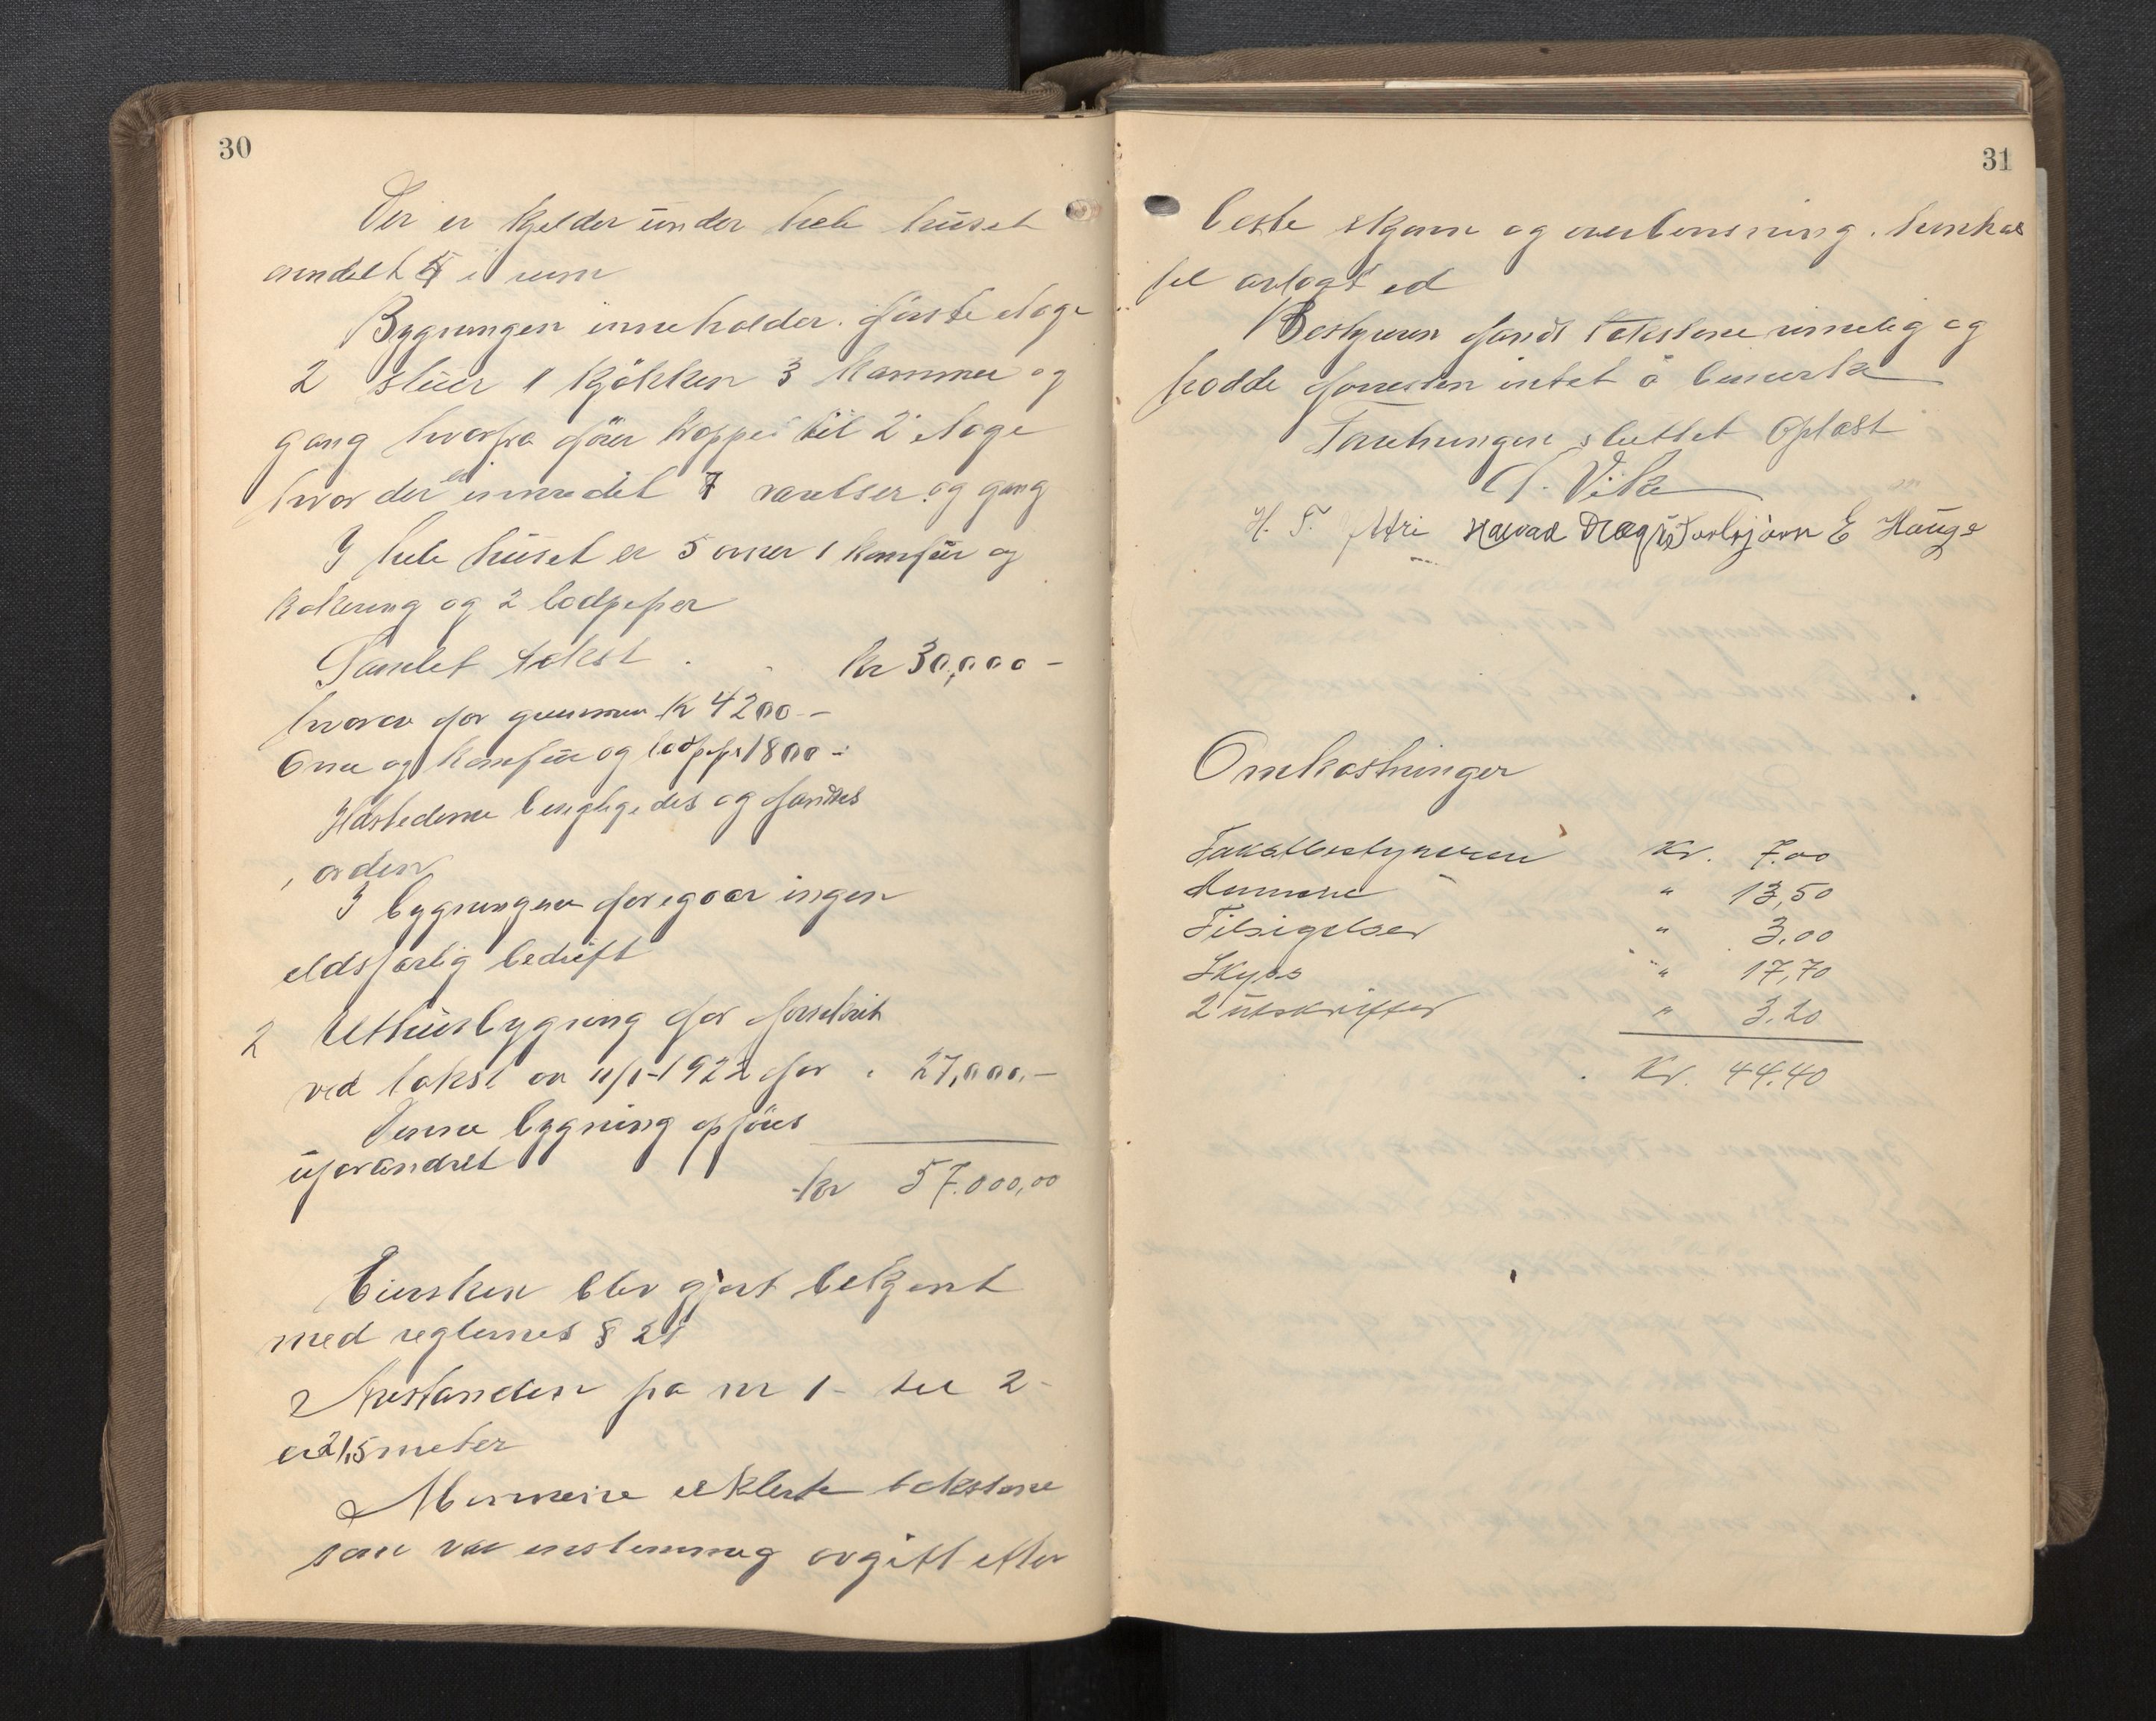 30
Der er kjelder under hele huset
inndelt i 5 rum
Bygningen inneholder. förste etage
2 stuer 1 kjökken 3 kammer og
gang hvorfra förer trappe til 2 etage
hvor der er innredet 7 værelser og gang
I hele huset er 5 ovner 1 komfür og
kokering og 2 lodpiper
Samlet takst . . kr 30,000 -
hvorav for grunmur kr 4200 -
Ovne og komfür og lodpipe 1800 -
Ildstederne besigtigedes og fandtes
i orden
I bygningen foregaar ingen
eldsfarlig bedrift
2 Uthusbygning før forsikret
ved takst av 11/1-1922 for . 27,000.-
Denne bygning opföres
uforandret
kr 57.000,00
Eiersken blev gjort bekjent
med reglernes § 21
Avstanden fra nr 1 - til 2 -
er 21,5 meter
Mennene erklerte takstene
som var enstemmig avgitt efter
31
beste skjönn og overbevisning. henhol
til avlagt ed
Bestyreren fandt takstene rimelig og
hadde forresten intet å bemerke
Forretningen sluttet Oplæst
T. Vik
H. T. Hævar Torbjørn E Hauge
Omkostninger
Takstbestyreren Kr. 7.00
Mennene " 13,50
Tilsigelser " 3.00
Skyss " 17,70
2 utskrifter " 3.20
Kr. 44.40